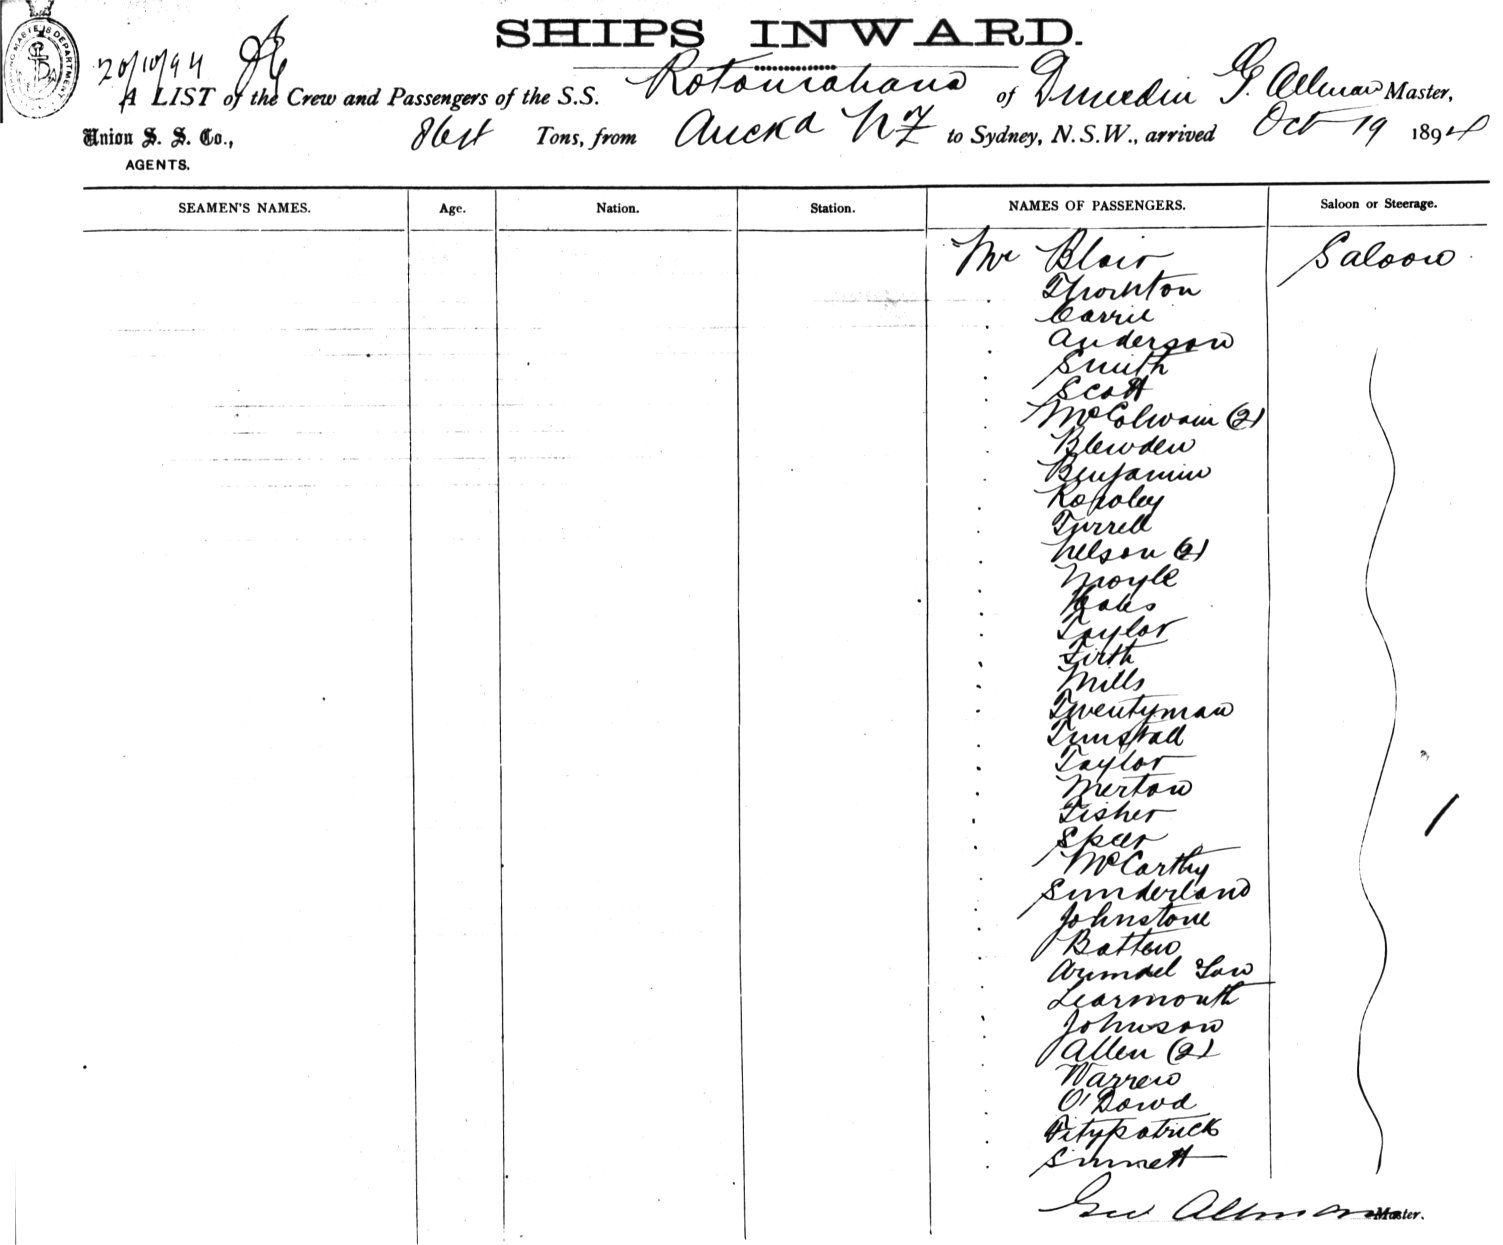 SHIPS INWARD.
20/10/94
A LIST of the Crew and Passengers of the S.S. Rotomahana of Dunedin G. Allman Master,
Union S. S. Co., 861 Tons, from Auckd NZ to Sydney, N.S.W., arrived Oct 19 1894
AGENTS.
SEAMEN'S NAMES. Age. Nation. Station. NAMES OF PASSENGERS. Saloon or Steerage.
Mr Blair Saloon
Thornton
Carrie
Anderson
Smith
Scott
Blewden
Benjamin
Tyrrell
Nelson (2)
Moyle
Taylor
Firth
Mills
Twentyman
Tunstall
Taylor
Merton
Fisher
Speer
McCarthy
Sunderland
Johnstone
Batten
Arundel
Learmouth
Johnson
Allen (2)
Warren
O'Dowd
Fitzpatrick
Sinnett
Geo Allman Master.